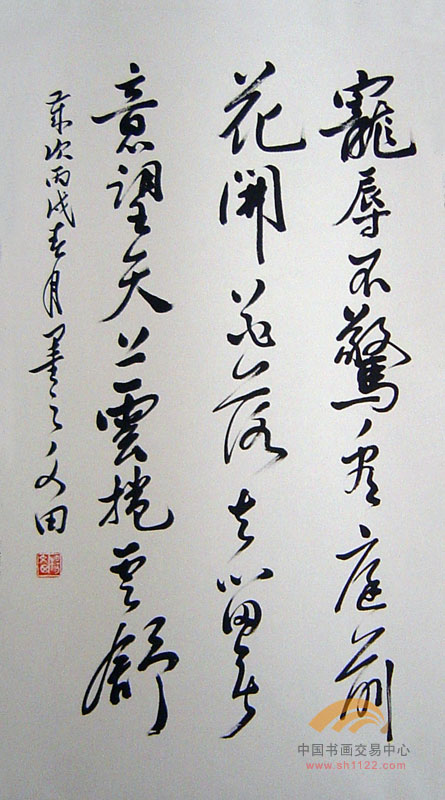 寵辱不驚看庭前
花開花落去留無
意望天上雲捲云舒
歲次丙戌春月 文田
中国书画交易中心
www.sh1122.com